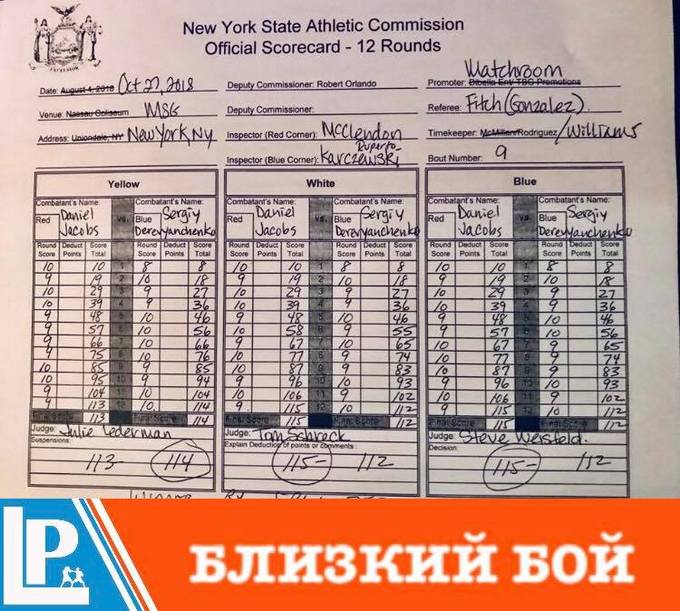 New York State Athletic Commission
Official Scorecard - 12 Rounds
Date: August 4, 2018 Oct 27, 2018
Deputy Commissioner: Robert Orlando
Matchroom
Promoter: Dibella Ent/TBG Promotions
Venue: Nassau Coliseum MSG
Deputy Commissioner:
Referee: Fitch (Gonzalez)
Address: Uniondale, NY New York, NY
Inspector (Red Corner): McClendon
Timekeeper: McMillen/Rodriguez/Williams
Ruperto
Inspector (Blue Corner): Karczewski
Bout Number: 9
Yellow White Blue
Combatant's Name: Combatant's Name: Combatant's Name: Combatant's Name: Combatant's Name: Combatant's Name:
Red Daniel Jacobs vs. Blue Sergiy Derevyanchenko Red Daniel Jacobs vs. Blue Sergiy Derevyanchenko Red Daniel Jacobs vs. Blue Sergiy Derevyanchenko
Round Score Deduct Points Score Total Round Score Deduct Points Score Total Round Score Deduct Points Score Total Round Score Deduct Points Score Total Round Score Deduct Points Score Total Round Score Deduct Points Score Total
10 10 1 8 8 10 10 1 8 8 10 10 1 8 8
9 19 2 10 18 9 19 2 10 18 9 19 2 10 18
10 29 3 9 27 10 29 3 9 27 10 29 3 9 27
10 39 4 9 36 10 39 4 9 36 10 39 4 9 36
9 48 5 10 46 9 48 5 10 46 9 48 5 10 46
9 57 6 10 56 10 58 6 9 55 9 57 6 10 56
9 66 7 10 66 9 67 7 10 65 10 67 7 9 65
9 75 8 10 76 10 77 8 9 74 10 77 8 9 74
10 85 9 9 85 10 87 9 9 83 10 87 9 9 83
10 95 10 9 94 9 96 10 10 93 9 96 10 10 93
9 104 11 10 104 10 106 11 9 102 10 106 11 9 102
9 113 12 10 114 9 115 12 10 112 9 115 12 10 112
Final Score 113 Final Score 114 Final Score 115 Final Score 112 Final Score 115 Final Score 112
Judge: Julie Lederman Judge: Tom Schreck Judge: Steve Weisfeld
Suspensions Explain Deduction of points or comments: Decision:
113- 114 115- 112 115- 112
LP БЛИЗКИЙ БОЙ